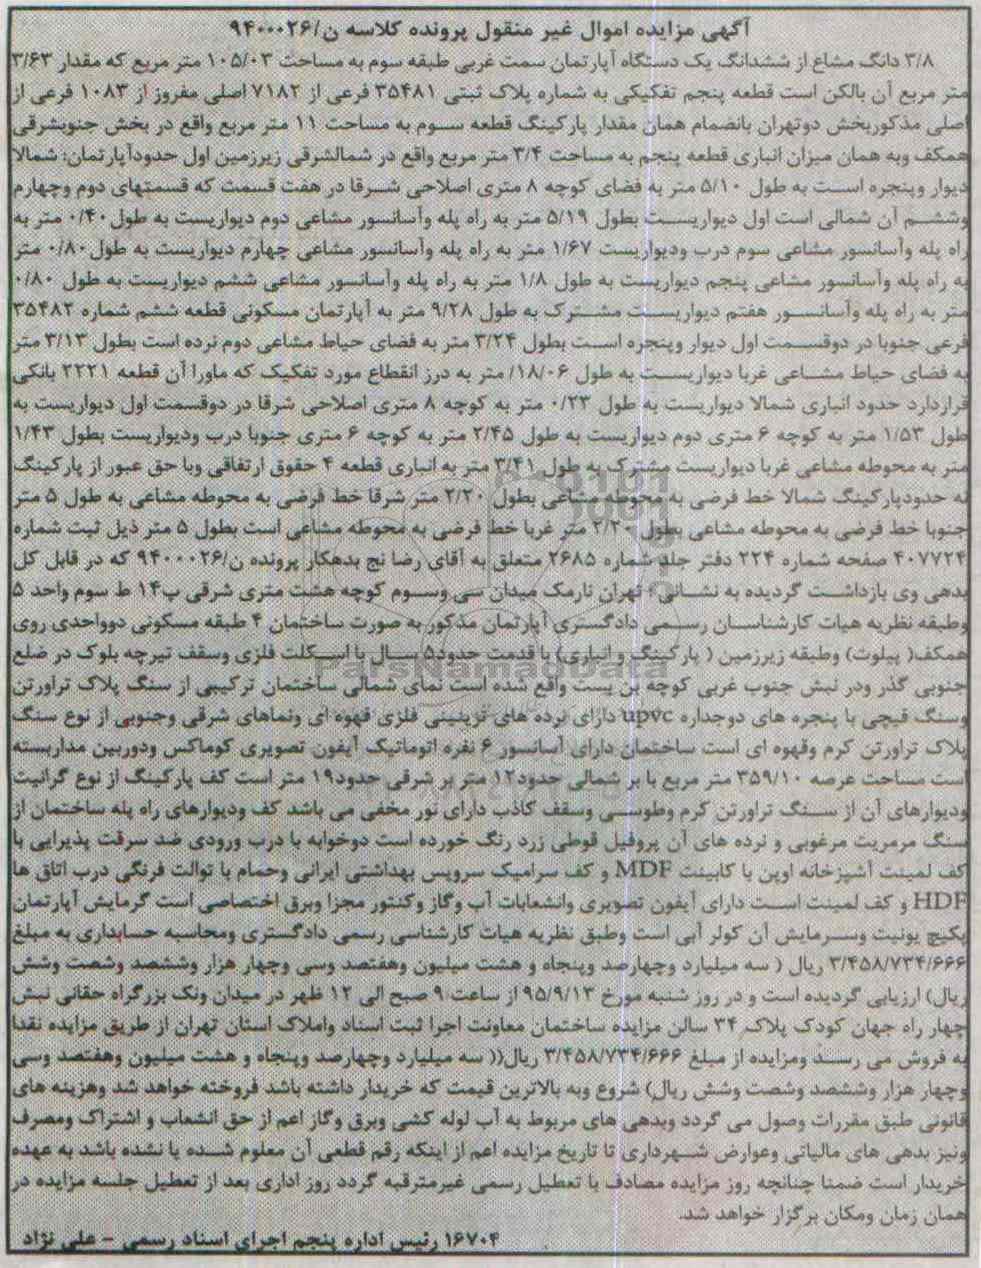 آگهی مزایده اموال غیر منقول پرونده کلاسه ن/۹۴۰۰۰۲۶
۳/۸ دانگ مشاع از ششدانگ یک دستگاه آپارتمان سمت غربی طبقه سوم به مساحت ۱۰۵/۰۳ متر مربع که مقدار ۳/۶۳
متر مربع آن بالکن است قطعه پنجم تفکیکی به شماره پلاک ثبتی ۳۵۴۸۱ فرعی از ۷۱۸۲ اصلی مفروز از ۱۰۸۳ فرعی از
اصلی مذکوربخش دوتهران بانضمام همان مقدار پارکینگ قطعه سوم به مساحت ۱۱ متر مربع واقع در بخش جنوبشرقی
همکف وبه همان میزان انباری قطعه پنجم به مساحت ۳/۴ متر مربع واقع در شمالشرقی زیرزمین اول حدودآپارتمان: شمالا
دیوار وپنجره است به طول ۵/۱۰ متر به فضای کوچه ۸ متری اصلاحی شرقا در هفت قسمت که قسمتهای دوم وچهارم
وششم آن شمالی است اول دیواریست بطول ۵/۱۹ متر به راه پله وآسانسور مشاعی دوم دیواریست به طول۰/۴۰ متر به
راه پله وآسانسور مشاعی سوم درب ودیواریست ۱/۶۷ متر به راه پله وآسانسور مشاعی چهارم دیواریست به طول۰/۸۰ متر
به راه پله وآسانسور مشاعی پنجم دیواریست به طول ۱/۸ متر به راه پله وآسانسور مشاعی ششم دیواریست به طول ۰/۸۰
متر به راه پله وآسانسور هفتم دیواریست مشترک به طول ۹/۲۸ متر به آپارتمان مسکونی قطعه ششم شماره ۳۵۴۸۲
فرعی جنوبا در دوقسمت اول دیوار وپنجره است بطول ۳/۲۴ متر به فضای حیاط مشاعی دوم نرده است بطول ۳/۱۳ متر
به فضای حیاط مشاعی غربا دیواریست به طول ۱۸/۰۶/ متر به درز انقطاع مورد تفکیک که ماورا آن قطعه ۲۲۲۱ بانکی
قراردارد حدود انباری شمالا دیواریست به طول ۰/۲۳ متر به کوچه ۸ متری اصلاحی شرقا در دوقسمت اول دیواریست به
طول ۱/۵۳ متر به کوچه ۶ متری دوم دیواریست به طول ۲/۴۵ متر به کوچه ۶ متری جنوبا درب ودیواریست بطول ۱/۴۳
متر به محوطه مشاعی غربا دیواریست مشترک به طول ۳/۴۱ متر به انباری قطعه ۴ حقوق ارتفاقی وبا حق عبور از پارکینگ
له حدودپارکینگ شمالا خط فرضی به محوطه مشاعی بطول ۲/۲۰ متر شرقا خط فرضی به محوطه مشاعی به طول ۵ متر
جنوبا خط فرضی به محوطه مشاعی بطول ۲/۲۰ متر غربا خط فرضی به محوطه مشاعی است بطول ۵ متر ذیل ثبت شماره
۴۰۷۷۲۴ صفحه شماره ۲۲۴ دفتر جلد شماره ۲۶۸۵ متعلق به آقای رضا نج بدهکار پرونده ن/۹۴۰۰۰۲۶ که در قابل کل
بدهی وی بازداشت گردیده به نشانی: تهران نارمک میدان سی وسوم کوچه هشت متری شرقی پ۱۴ ط سوم واحد ۵
وطبقه نظریه هیات کارشناسان رسمی دادگستری آپارتمان مذکور به صورت ساختمان ۴ طبقه مسکونی دوواحدی روی
همکف( پیلوت) وطبقه زیرزمین ( پارکینگ و انباری) با قدمت حدود۵ سال با اسکلت فلزی وسقف تیرچه بلوک در ضلع
جنوبی گذر ودر نبش جنوب غربی کوچه بن بست واقع شده است نمای شمالی ساختمان ترکیبی از سنگ پلاک تراورتن
وسنگ قیچی با پنجره های دوجداره upvc دارای نرده های تزیینی فلزی قهوه ای ونماهای شرقی وجنوبی از نوع سنگ
پلاک تراورتن کرم وقهوه ای است ساختمان دارای آسانسور ۶ نفره اتوماتیک آیفون تصویری کوماکس ودوربین مداربسته
است مساحت عرصه ۳۵۹/۱۰ متر مربع با بر شمالی حدود۱۲ متر بر شرقی حدود۱۹ متر است کف پارکینگ از نوع گرانیت
ودیوارهای آن از سنگ تراورتن کرم وطوسی وسقف کاذب دارای نور مخفی می باشد کف ودیوارهای راه پله ساختمان از
سنگ مرمریت مرغوبی و نرده های آن پروفیل قوطی زرد رنگ خورده است دوخوابه با درب ورودی ضد سرقت پذیرایی با
کف لمینت آشپزخانه اوپن با کابینت MDF و کف سرامیک سرویس بهداشتی ایرانی وحمام با توالت فرنگی درب اتاق ها
HDF و کف لمینت است دارای آیفون تصویری وانشعابات آب وگاز وکنتور مجزا وبرق اختصاصی است گرمایش آپارتمان
پکیچ یونیت وسرمایش آن کولر آبی است وطبق نظریه هیات کارشناسی رسمی دادگستری ومحاسبه حسابداری به مبلغ
۳/۴۵۸/۷۳۴/۶۶۶ ریال ( سه میلیارد وچهارصد وپنجاه و هشت میلیون وهفتصد وسی وچهار هزار وششصد وشصت وشش
ریال) ارزیابی گردیده است و در روز شنبه مورخ ۹۵/۹/۱۳ از ساعت ۹ صبح الی ۱۲ ظهر در میدان ونک بزرگراه حقانی نبش
چهار راه جهان کودک پلاک ۳۴ سالن مزایده ساختمان معاونت اجرا ثبت اسناد واملاک استان تهران از طریق مزایده نقدا
به فروش می رسد ومزایده از مبلغ ۳/۴۵۸/۷۳۴/۶۶۶ ریال(( سه میلیارد وچهارصد وپنجاه و هشت میلیون وهفتصد وسی
وچهار هزار وششصد وشصت وشش ریال) شروع وبه بالاترین قیمت که خریدار داشته باشد فروخته خواهد شد وهزینه های
قانونی طبق مقررات وصول می گردد وبدهی های مربوط به آب لوله کشی وبرق وگاز اعم از حق انشعاب و اشتراک ومصرف
ونیز بدهی های مالیاتی وعوارض شهرداری تا تاریخ مزایده اعم از اینکه رقم قطعی آن معلوم شده یا نشده باشد به عهده
خریدار است ضمنا چنانچه روز مزایده مصادف با تعطیل رسمی غیرمترقبه گردد روز اداری بعد از تعطیل جلسه مزایده در
همان زمان ومکان برگزار خواهد شد.
۱۶۷۰۴ رئیس اداره پنجم اجرای اسناد رسمی - علی نژاد
ParsNamadData